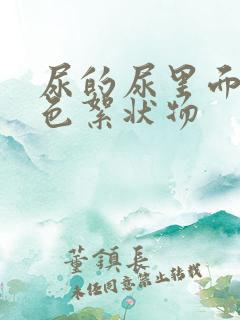 尿的尿里而
色絮状物
董鎮長
未经同意禁止转载